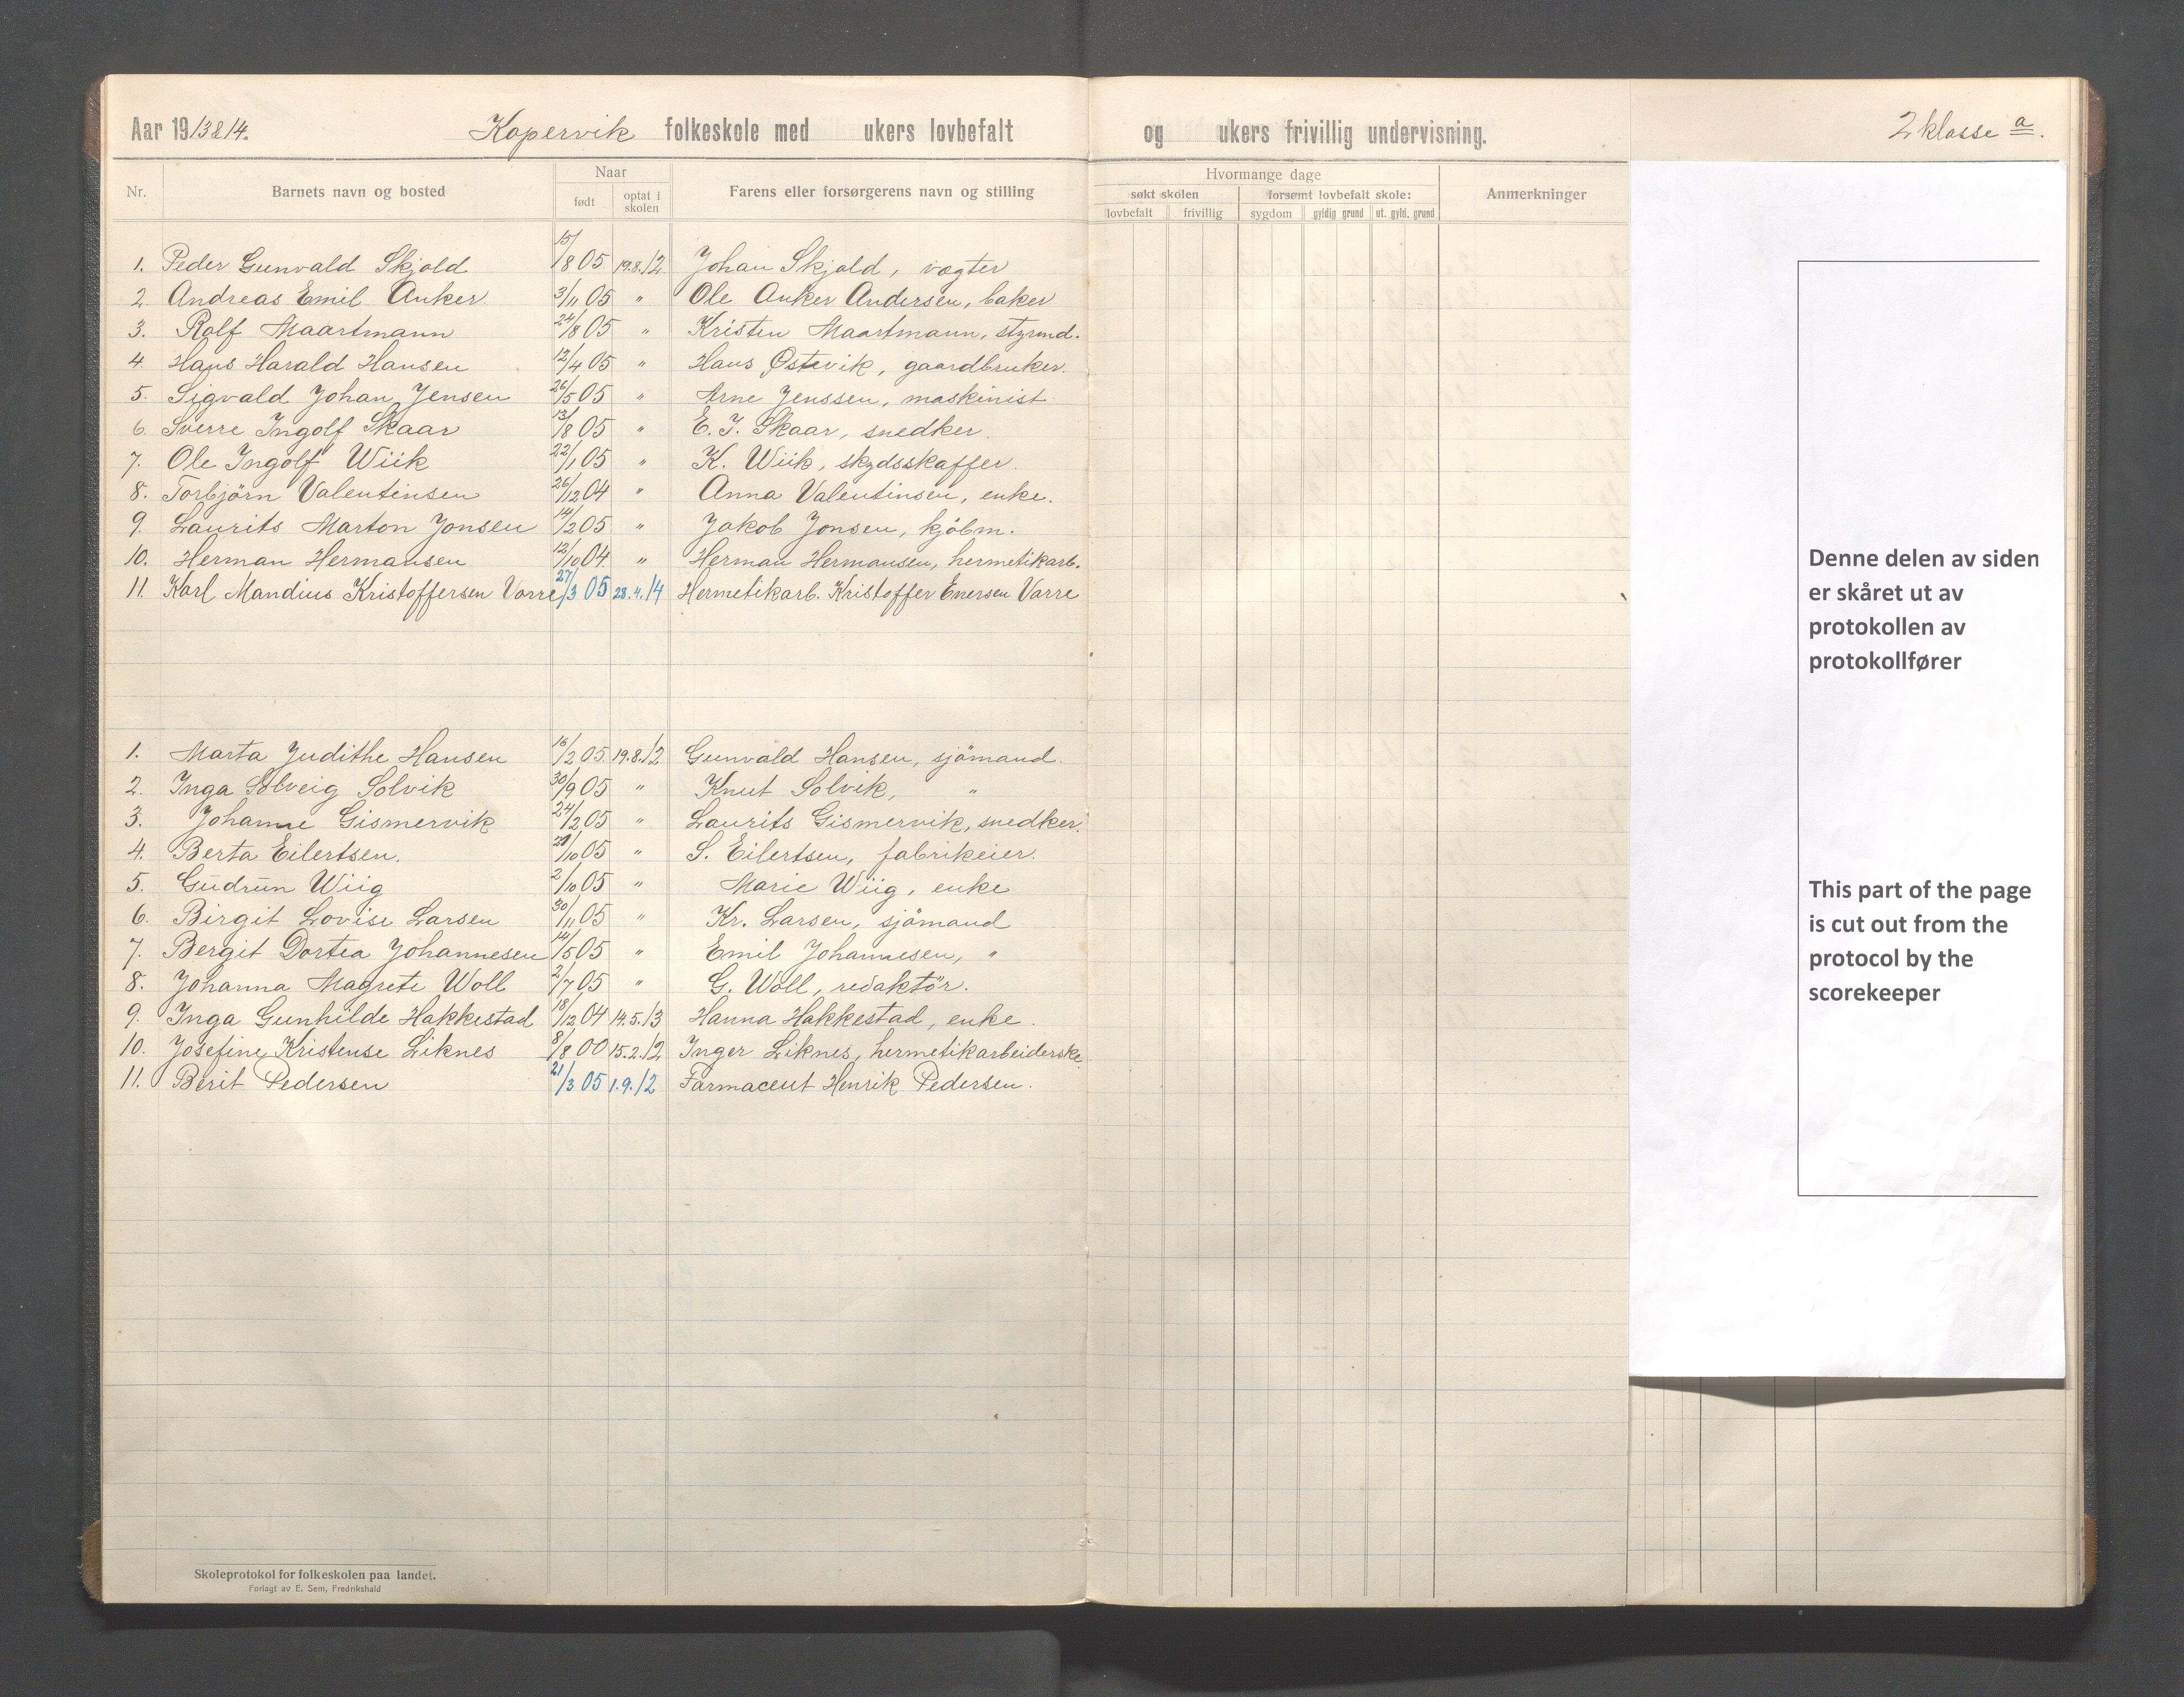 Aar 1913 & 14. Kopervik folkeskole med ukers lovbefalt og ukers frivillig undervisning. 2 klasse a.
Nr. Barnets navn og bosted Naar født optat i skolen Farens eller forsørgerens navn og stilling Hvormange dage søkt skolen lovbefalt frivillig forsømt lovbefalt skole: sygdom gyldig grund ut. gyld. grund Anmerkninger
1. Peder Gunvald Skjold 15/8 05 19.8.12 Johan Skjold, vægter
2. Andreas Emil Anker 3/11 05 " Ole Anker Andersen, baker
3. Rolf Maartmann 24/8 05 " Kristen Maartmann, styrmd.
4. Hans Harald Hansen 12/4 05 " Hans Østevik, gaardbruker.
5. Sigvald Johan Jensen 26/5 05 " Arne Jenssen, maskinist.
6. Sverre Ingolf Skaar 13/8 05 " E. I. Skaar, snedker.
7. Ole Ingolf Wiik 22/1 05 " K. Wiik, skydsskaffer.
8. Torbjörn Valentinsen 26/12 04 " Anna Valentinsen, enke.
9. Laurits Marton Jonsen 14/2 05 " Jakob Jonsen, kjöbm.
10. Herman Hermansen 12/10 04. " Herman Hermansen, hermetikarb.
11. Karl Mandius Kristoffersen Vorre 27/3 05 28.4.14 Hermetikarb. Kristoffer Enersen Vorre
1. Marta Judithe Hansen 16/2 05. 19.8.12 Gunvald Hansen, sjömand.
2. Inga Solveig Solvik 30/9 05 " Knut Solvik, "
3. Johanne Gismervik 24/2 05 " Laurits Gismervik, snedker.
4. Berta Eilertsen. /10 05 " S. Eilertsen, fabrikeier.
5. Gudrun Wiig 2/10 05 " Marie Wiig, enke
6. Birgit Lovise Larsen 30/11 05 " Kr. Larsen, sjömand
7. Bergit Dortea Johannesen 14/5 05 " Emil Johannesen, "
8. Johanna Magrete Woll 2/7 05 " G. Woll, redaktör.
9. Inga Gunhilde Hakkestad 18/12 04 14.5.13 Hanna Hakkestad, enke.
10. Josefine Kristense Liknes 8/8 00 15.2.12 Inger Liknes, hermetikarbeiderske
11. Berit Pedersen 21/3 05 1.9.12 Farmaceut Henrik Pedersen.
Skoleprotokol for folkeskolen paa landet.
Forlagt av E. Sem, Fredrikshald
Denne delen av siden
er skåret ut av
protokollen av
protokollfører
This part of the page
is cut out from the
protocol by the
scorekeeper